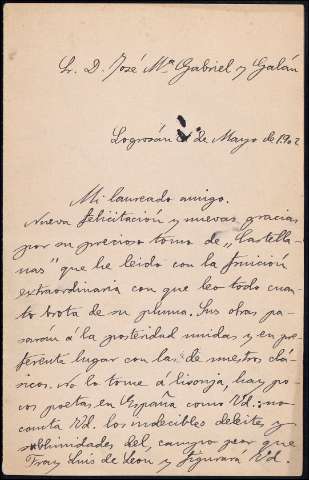 Sr. D. José Mª Gabriel y Galán
Logrosán de Mayo de 1902
Mi laureado amigo.
Nueva felicitación y nuevas gracias
por su precioso tomo de "Castella-
nas" que he leido con la fruición
extraordinaria con que leo todo cuan-
to brota de su pluma. Sus obras pa-
sarán á la posteridad unidas y en pre-
ferente lugar con las de nuestros clá-
sicos. No lo tome á lisonja, hay po-
cos poetas en España como Vd.: no
canta Vd. los indecibles deleites y
sublimidades del campo peor que
Fray Luis de Leon y figurará Vd.